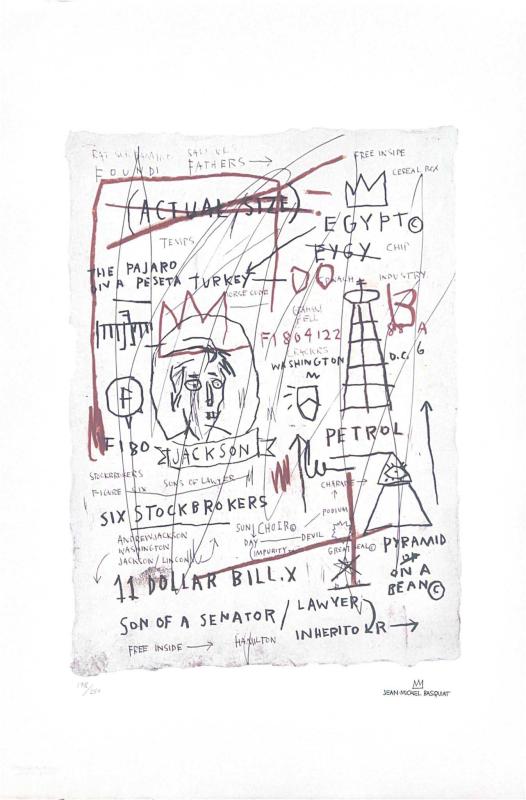 FREE INSIDE
FOUND FATHERS →
CEREAL BOX
(ACTUAL SIZE)
EGYPT©
TEMPS
EYGY CHIP
THE PAJARO
ON A PESETA TURKEY
INDUSTRY
MORSE CODE
B
F1804122
88 A
CRACKERS
WASHINGTON
D.C. 6
F
PETROL
F180
JACKSON
STOCKBROKERS
FIGURE SIX SONS OF LAWYER
SIX STOCKBROKERS
PODIUM
SUN CHOIR©
ANDREW JACKSON
DAY DEVIL
WASHINGTON
(IMPURITY GREAT SEAL©
PYRAMID
JACKSON/LINCON
OF
ON A
11 DOLLAR BILL.X
BEAN©
SON OF A SENATOR / LAWYER
INHERITOR →
FREE INSIDE → HAMILTON
JEAN-MICHEL BASQUIAT